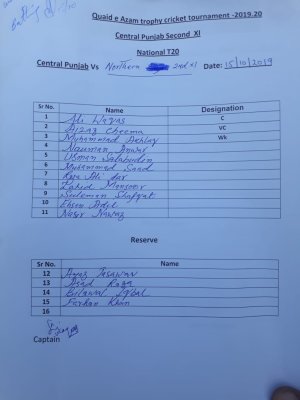 Quaid e Azam trophy cricket tournament -2019.20
Central Punjab Second XI
National T20
Central Punjab Vs Northern 2nd XI Date: 15/10/2019
Sr No. Name Designation
1 Ali Waqas C
2 Aizaz Cheema VC
3 Muhammad Akhlaq Wk
4 Nauman Anwar
5 Usman Salahudin
6 Muhammad Saad
7 Raza Ali Dar
8 Zahid Mansoor
9 Suleman Shafqat
10 Ehsan Adil
11 Nasir Nawaz
Reserve
Sr No. Name
12
13 Asad Raza
14 Bilawal Iqbal
15 Farhan Khan
16
Captain